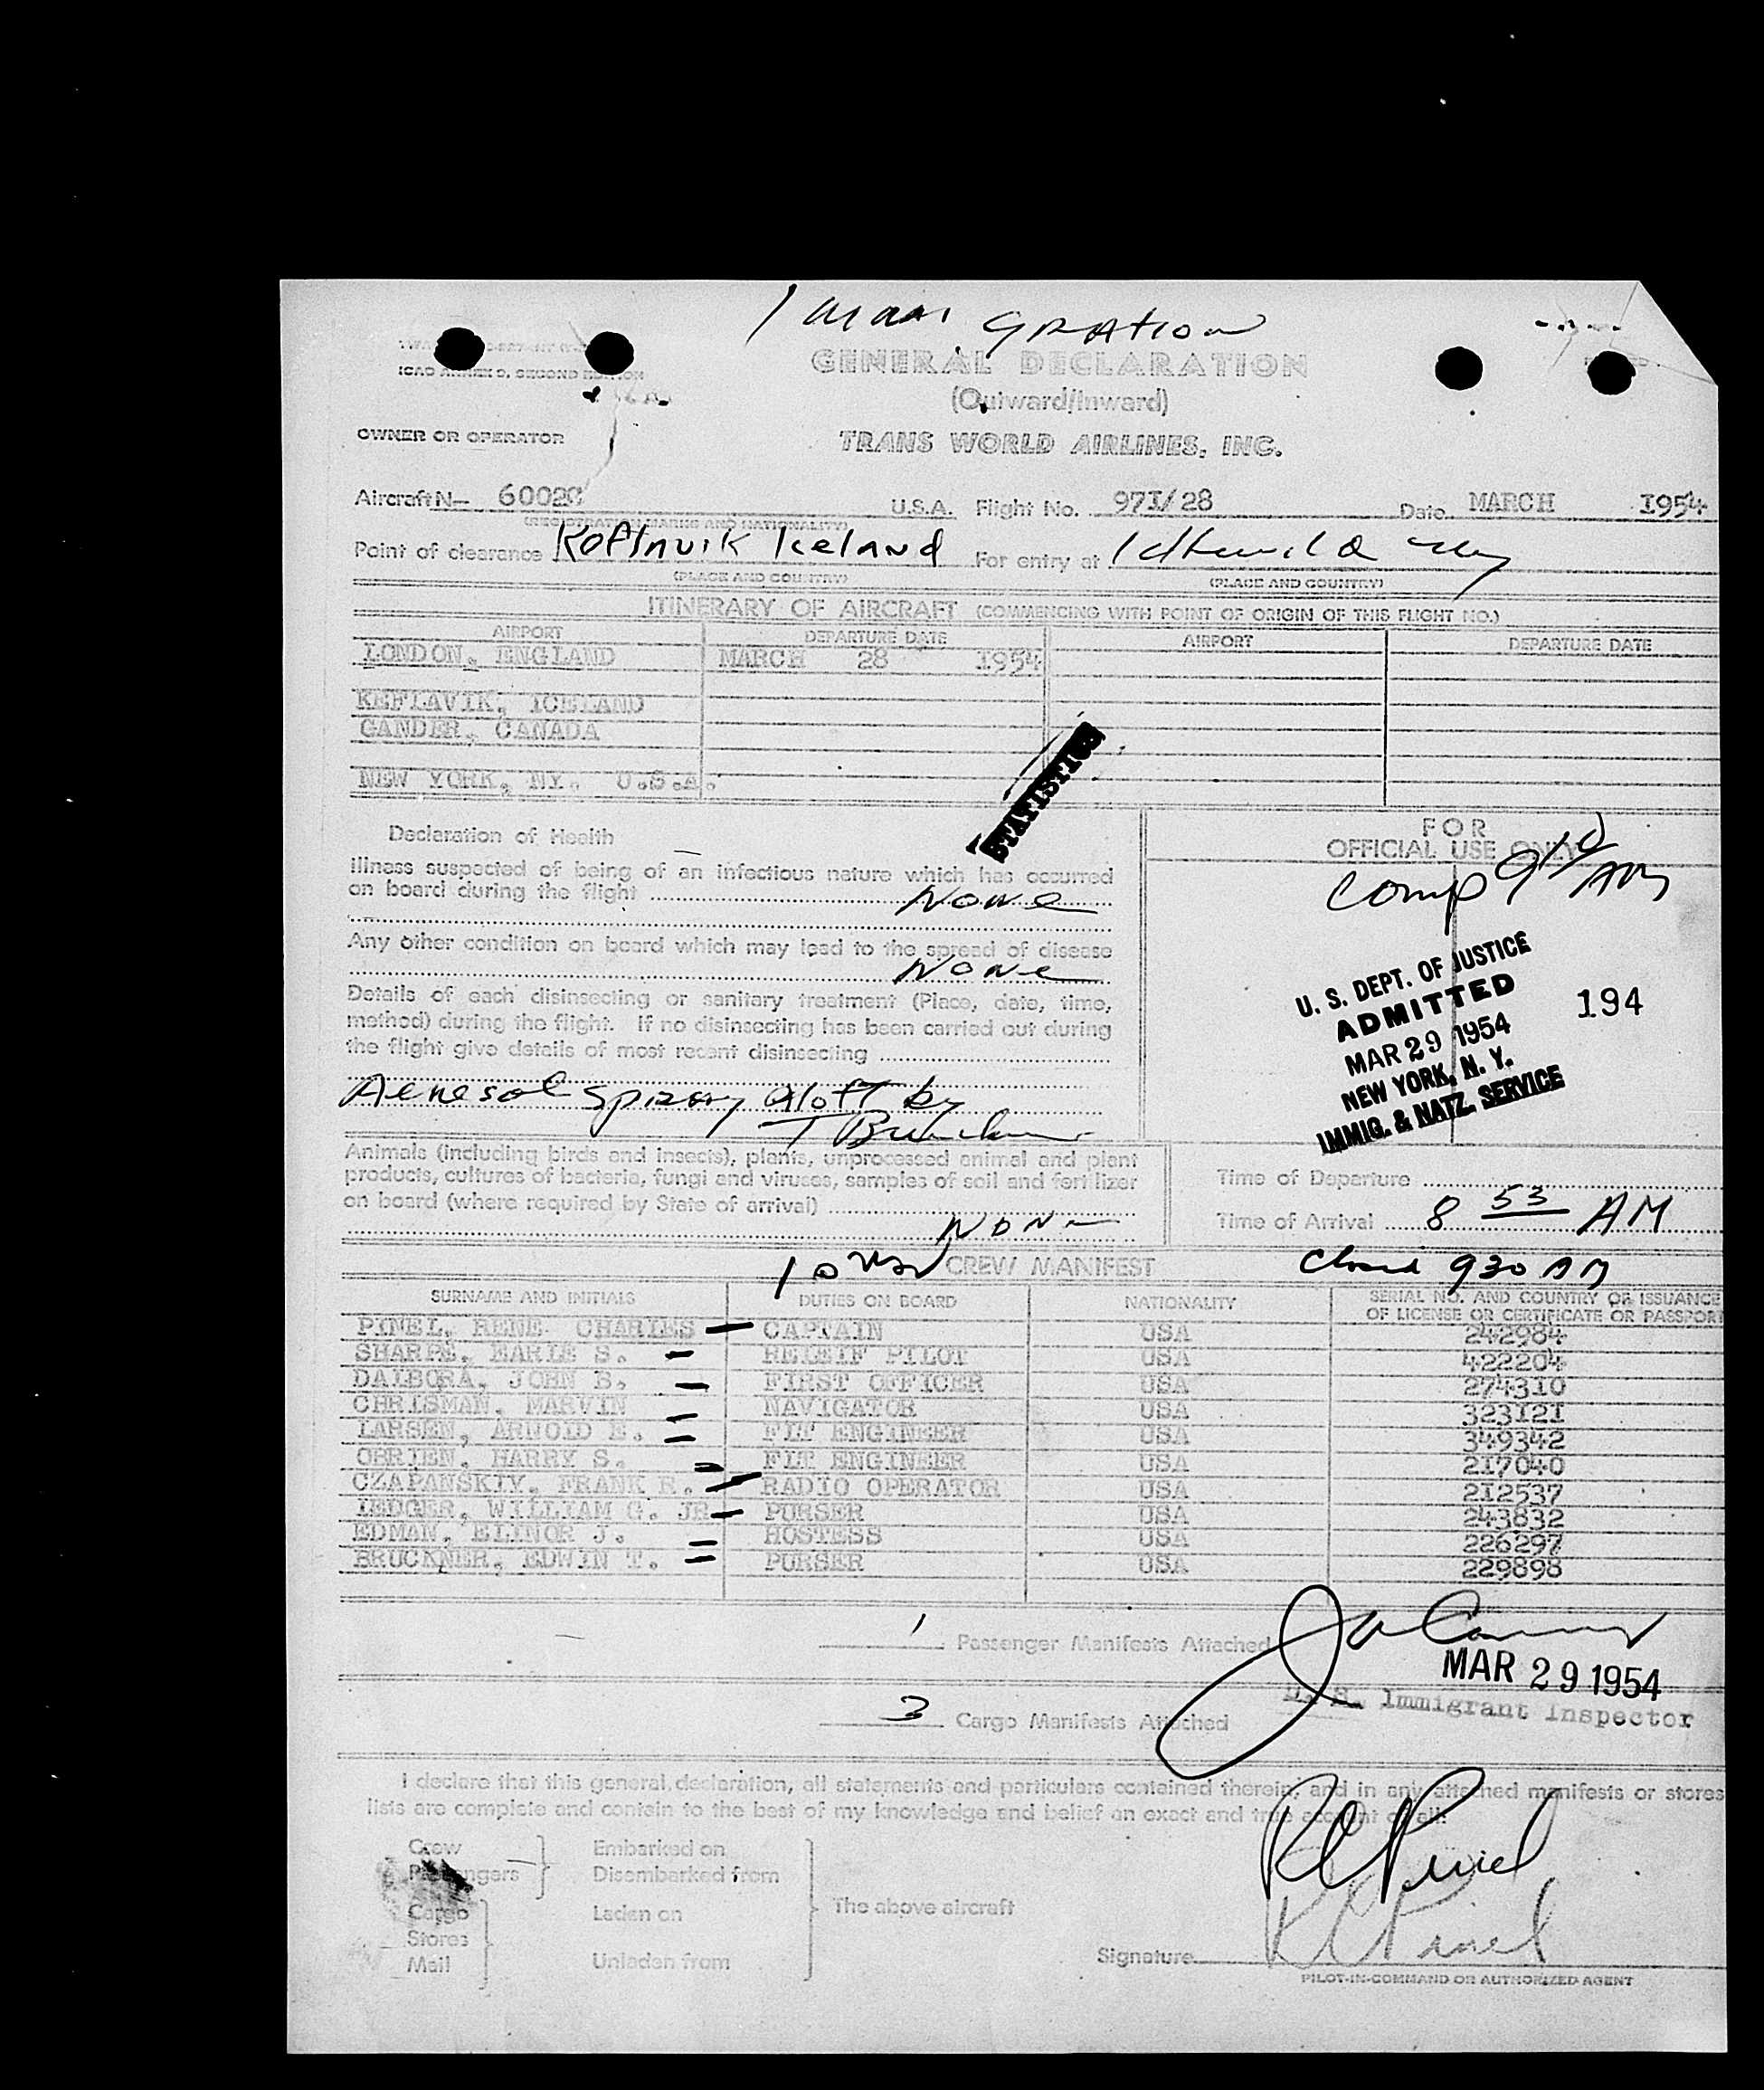 Immi gration
ICAO ANNEX 9, SECOND EDITION
GENERAL DECLARATION
(Outward/Inward)
OWNER OR OPERATOR
TRANS WORLD AIRLINES, INC.
Aircraft N- 6002 U.S.A. Flight No. 971/28 Date MARCH 1954
(REGISTRATION MARKS AND NATIONALITY)
Point of clearance Keflavik Iceland For entry at Idlewild
(PLACE AND COUNTRY) (PLACE AND COUNTRY)
ITINERARY OF AIRCRAFT (COMMENCING WITH POINT OF ORIGIN OF THIS FLIGHT NO.)
AIRPORT DEPARTURE DATE AIRPORT DEPARTURE DATE
LONDON, ENGLAND MARCH 28 1954
KEFLAVIK, ICELAND
GANDER, CANADA
NEW YORK, NY. U.S.A.
STATISTICS
Declaration of Health
Illness suspected of being of an infectious nature which has occurred
on board during the flight None
Any other condition on board which may lead to the spread of disease
None
Details of each disinsecting or sanitary treatment (Place, date, time,
method) during the flight. If no disinsecting has been carried out during
the flight give details of most recent disinsecting
Aenesol Spray aloft by
T Bruckner
Animals (including birds and insects), plants, unprocessed animal and plant
products, cultures of bacteria, fungi and viruses, samples of soil and fertilizer
on board (where required by State of arrival)
None
FOR
OFFICIAL USE ONLY
Comp 910 AM
U. S. DEPT. OF JUSTICE
ADMITTED
MAR 29 1954
NEW YORK, N. Y.
IMMIG. & NATZ. SERVICE
194
Time of Departure
Time of Arrival 8 53 AM
10 CREW MANIFEST Closed 930 AM
SURNAME AND INITIALS DUTIES ON BOARD NATIONALITY SERIAL NO. AND COUNTRY OF ISSUANCE
OF LICENSE OR CERTIFICATE OR PASSPORT
PINEL, RENE CHARLES CAPTAIN USA 242984
SHARPE, EARLE S. RELEIF PILOT USA 422204
DALBORA, JOHN B. FIRST OFFICER USA 274310
CHRISMAN, MARVIN NAVIGATOR USA 323121
LARSEN, ARNOLD E. FLT ENGINEER USA 349342
OBRIEN, HARRY S. FLT ENGINEER USA 217040
CZAPANSKIY, FRANK R. RADIO OPERATOR USA 212537
LEDGER, WILLIAM G. JR PURSER USA 243832
EDMAN, ELINOR J. HOSTESS USA 226297
BRUCKNER, EDWIN T. PURSER USA 229898
1 Passenger Manifests Attached
MAR 29 1954
U. S. Immigrant Inspector
3 Cargo Manifests Attached
I declare that this general declaration, all statements and particulars contained therein, and in any attached manifests or stores
lists are complete and contain to the best of my knowledge and belief an exact and true account of all:
Crew Embarked on
Passengers Disembarked from
The above aircraft
Cargo Laden on
Stores
Mail Unladen from
R C Pinel
R C Pinel
Signature
PILOT-IN-COMMAND OR AUTHORIZED AGENT